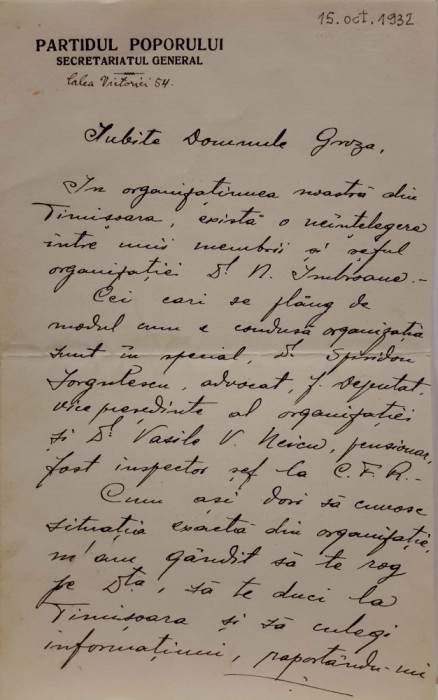 15. oct. 1932
PARTIDUL POPORULUI
SECRETARIATUL GENERAL
Calea Victoriei 54.
Iubite Domnule Groza,
In organizatiunea noastră din
Timişoara, există o neînţelegere
între unii membrii şi şeful
organizaţiei Dl. N. Imbroane.-
Cei cari se plâng de
modul cum e condusă organizatia
sunt în special, Dl. Spiridon
Iorgulescu, advocat, f. deputat,
vice preşedinte al organizaţiei
şi Dl. Vasile V. Neicu, pensionar,
fost inspector şef la C.F.R.-
Cum aşi dori să cunosc
situaţia exactă din organizaţie,
m'am gândit să te rog
pe Dta, să te duci la
Timişoara şi să culegi
informaţiuni, raportându-mi